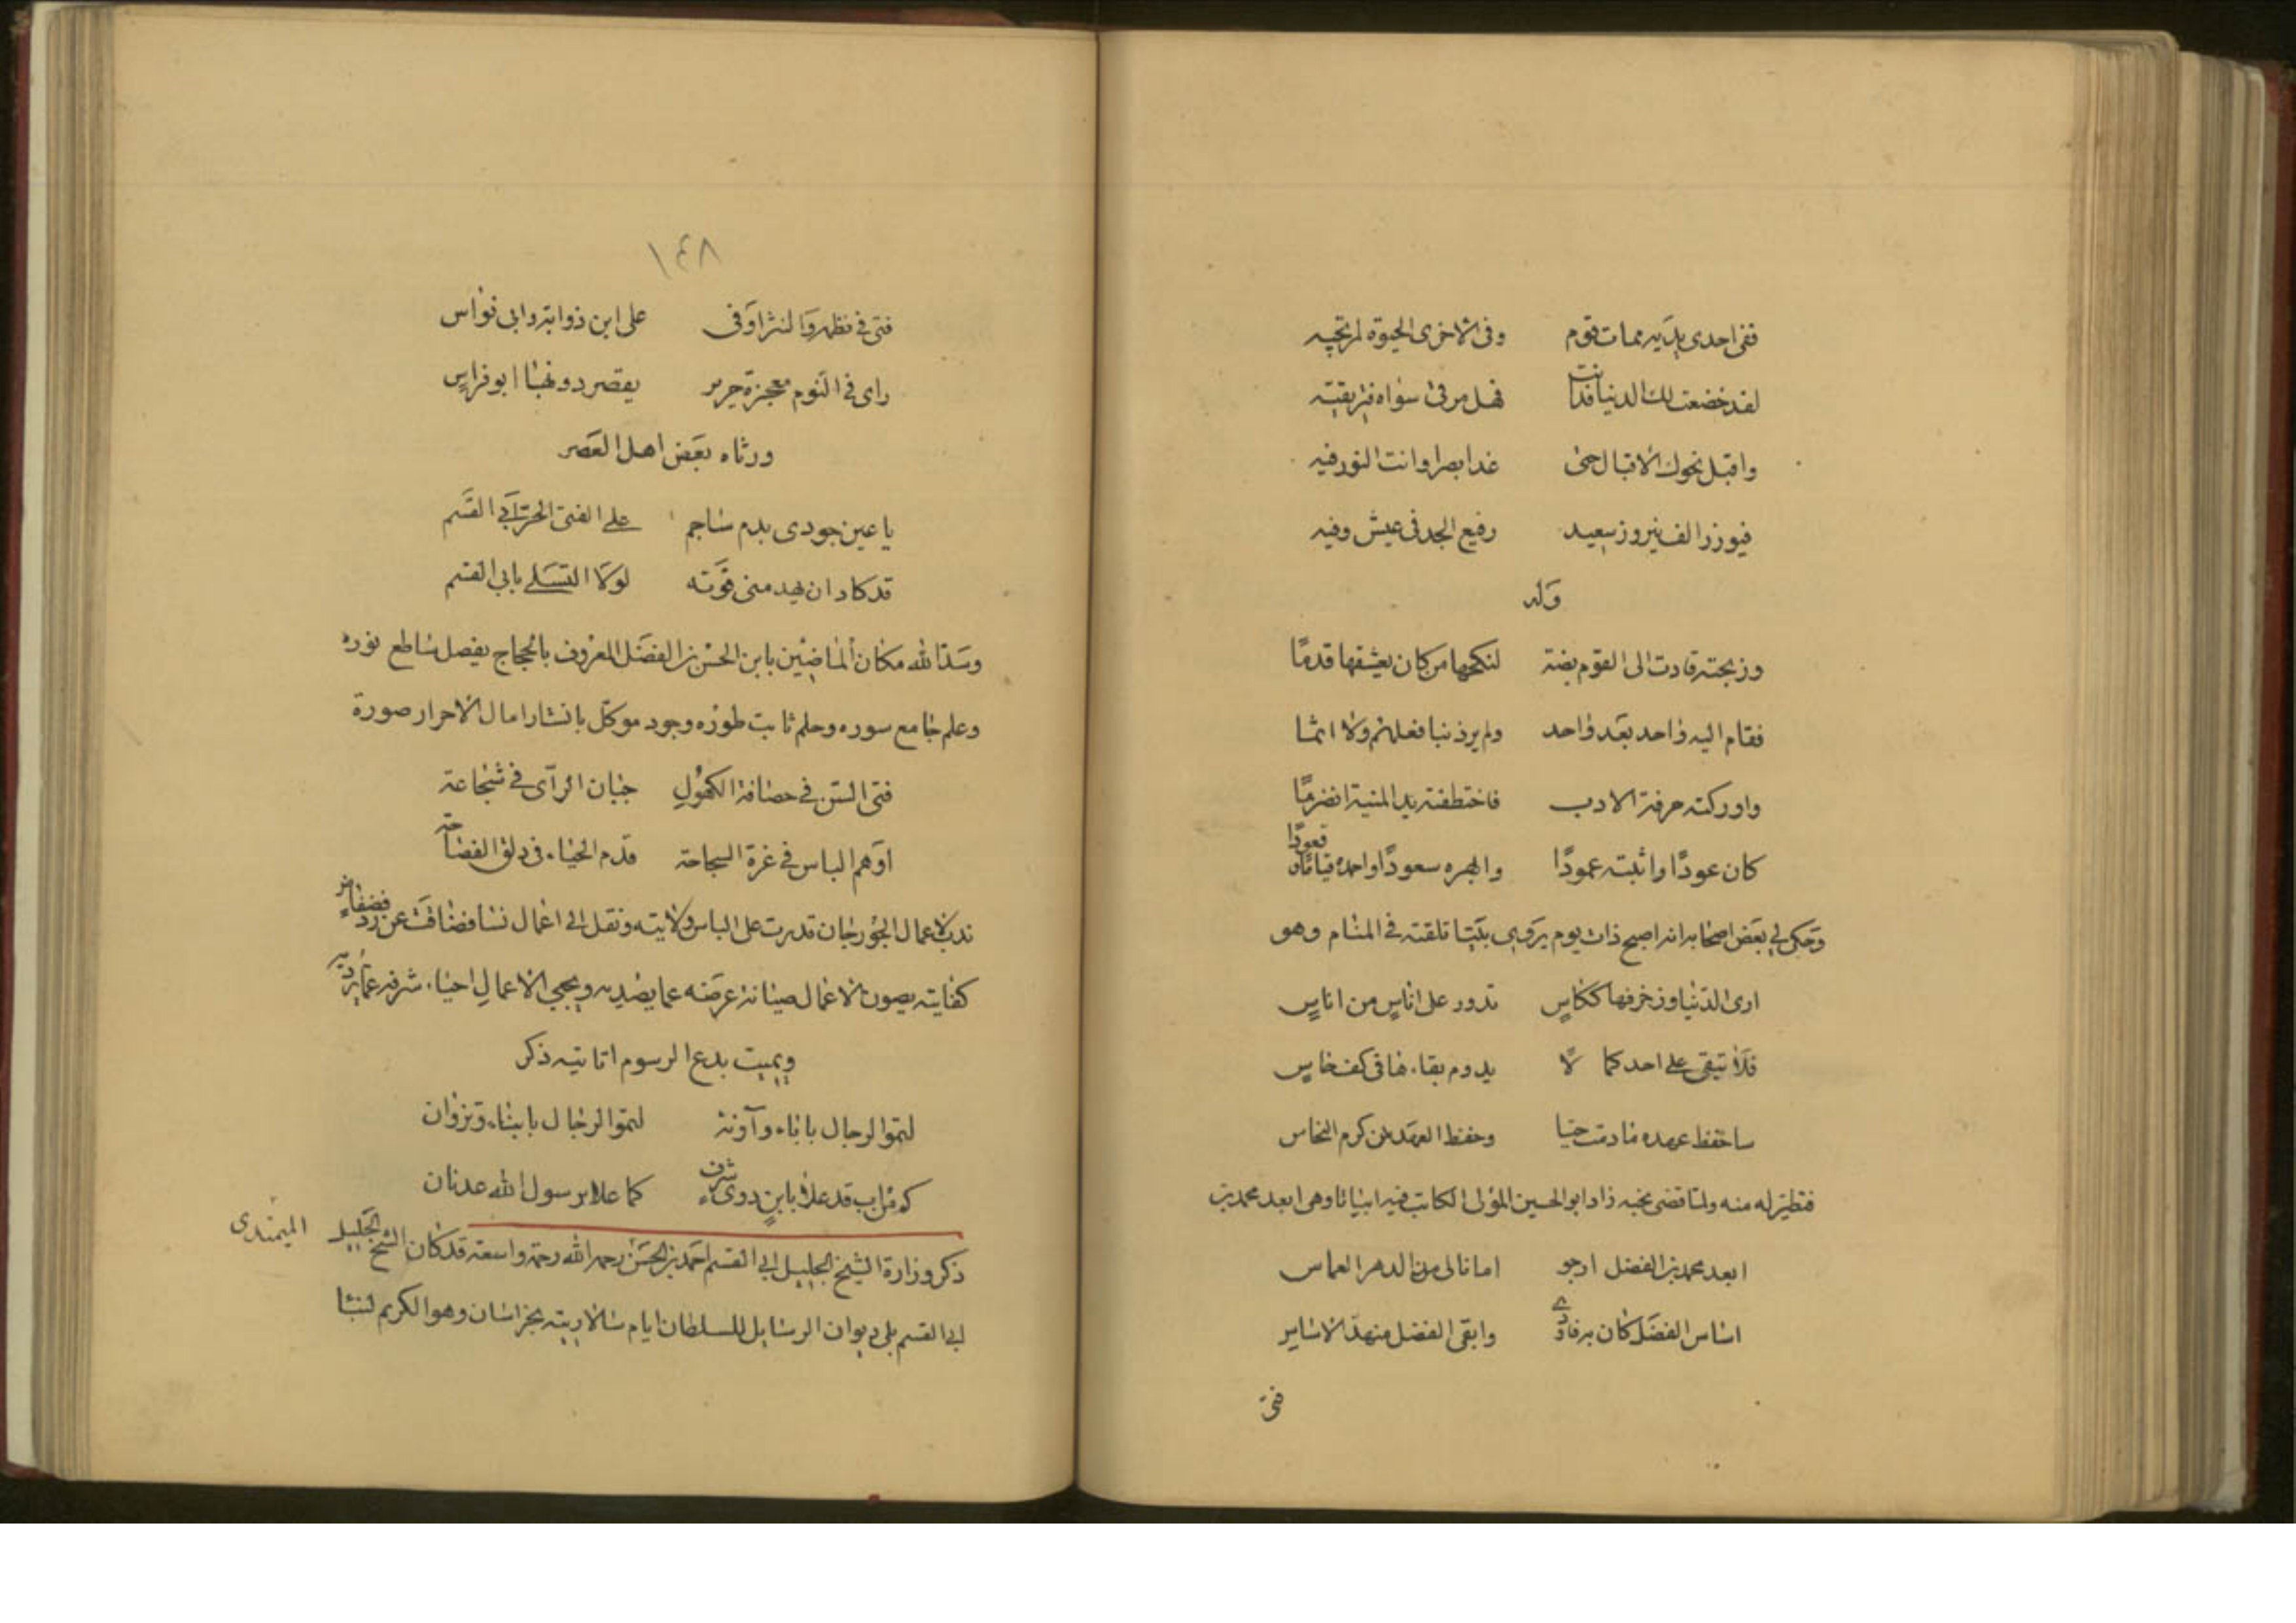 ففى احدى يديه ممات قوم وفى الاخرى الحيوة لمرتجيه
لقد خضعت لك الدنيا فدانت فهل مرقى سواه فترتقيه
واقبل نحوك الاقبال حتى غدا بصرا وانت النور فيه
فيوزر الف نيروز سعيد رفيع الجد فى عيش وفيه
وله
وزبجته قادت الى القوم بضة لنكحها من كان يعشقها قدمًا
فقام اليه واحد بعد واحد ولم ير ذنبا فعلهم ولا اثما
وادركته حرفة الادب فاختطفته يد المنية
كان عودًا واثبته عمودًا سعودًا واحمده قياما وقعودًا
وحكى لى بعض اصحابه انه اصبح ذات يوم يروى بيتا تلقنه فى المنام وهو
ارى الدنيا وزخرفها ككاس تدور على اناس من اناس
فلا تبقى على احد كما لا يدوم بقاءها فى كف حاس
ساحفظ عهده ما دمت حيا وحفظ العهد من كرم النحاس
فتطير له منه ولما قضى نحبه زاد ابو الحسين المؤملى الكاتب فيه ابياتا وهى ابعد محمد بن
ابعد محمد بن الفضل ارجو امانا لى من الدهر العماس
اساس الفضل كان به فاودى وابقى الفضل منهد الاساس
فتى
١٤٨
فتى فى نظمه والنثر اوفى على ابن ذوابة وابى نواس
راى فى النوم معجزة جرير يقصر دونها ابو فراس
ورثاه بعض اهل العصر
يا عين جودى بدم ساجم على الفتى الحر ابى القسم
قد كاد ان يهدمنى فوته لولا التسلى بابى القسم
وسد الله مكان الماضيين بابن الحسن بن الفضل المعروف بالحجاج بفضل ساطع نوره
وعلم جامع سوره وحلم ثابت طوره وجود موكل بانشار امال الاحرار صورة
فتى السن فى حصافة الكهول جبان الراى فى شجاعة
اوهم الباس فى غرة السجاحة قدم الحياء فى دلق الفصاحة
ندب لاعمال الجوزجان فدرت على الباس ولايته ونقل الى اعمال نسا فضاقت عن فضفاض
كفايته يصون الاعمال صيانة عرضه عما يصديه ويحيى الاعمال احياء شرفه
ويميت بدع الرسوم اماتته ذكر
لتموا الرجال باباء وآونة لتموا الرجال بابناء وتزوان
كم من اب قد علا بابن ذوى شرف كما علا برسول الله عدنان
ذكر وزارة الشيخ الجليل ابى القسم احمد بن الحسن رحمه الله رحمة واسعة قد كان الشيخ الجليل الميمندى
ابى القسم يلى ديوان الرسايل للسلطان ايام سالاريته بخراسان وهو الكريم نسبا